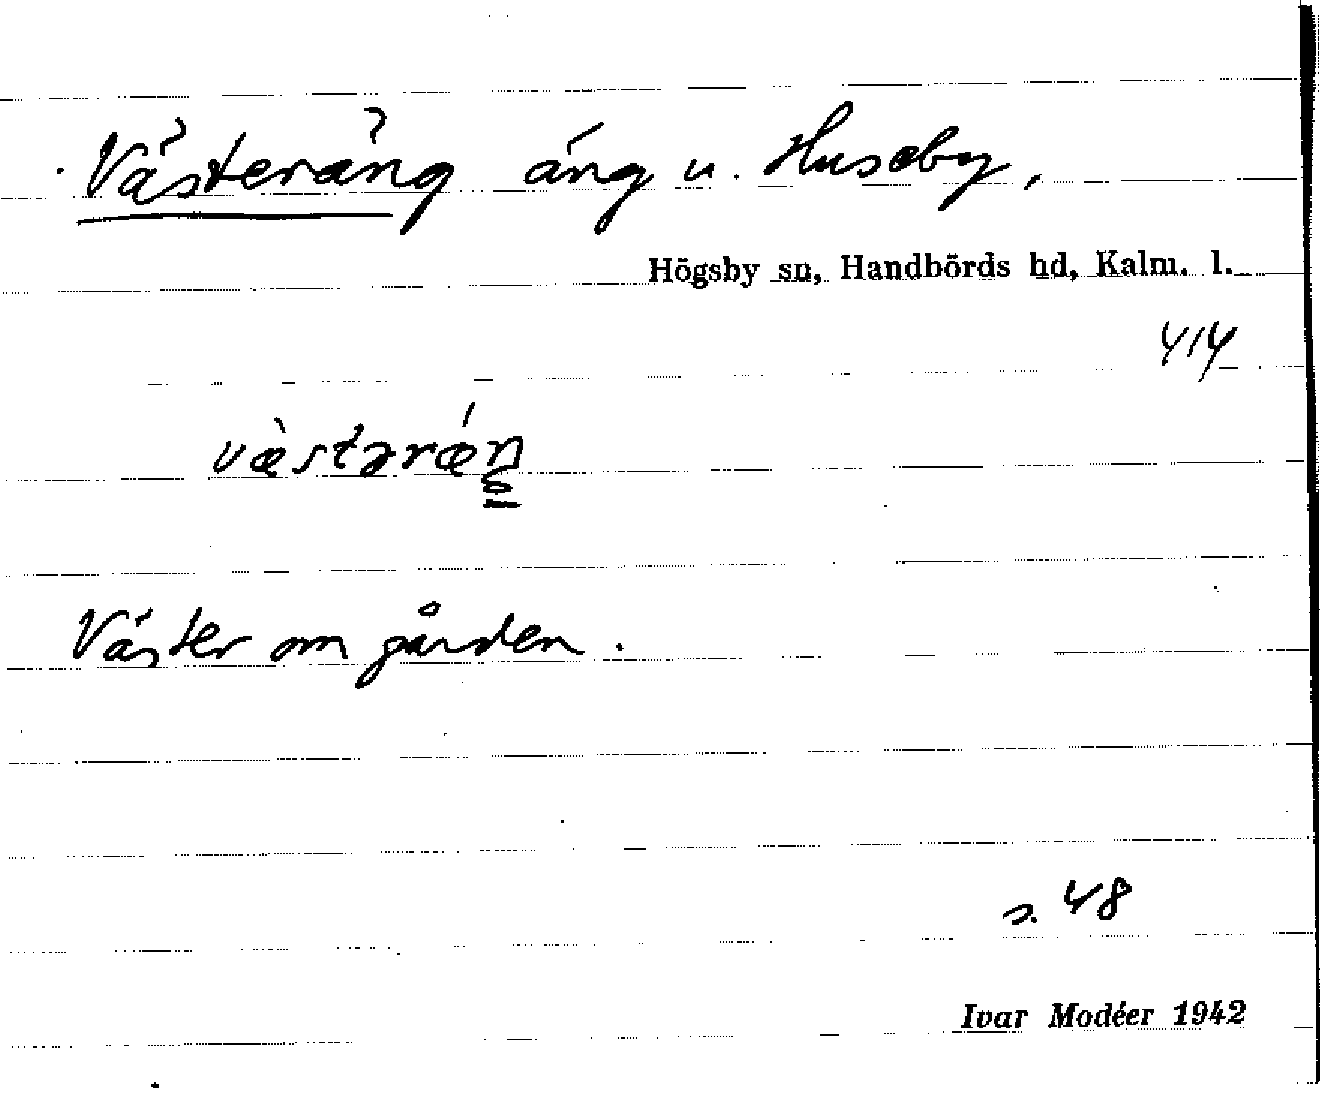 Västeräng äng u. Huseby,
Högsby sn, Handbörds hd, Kalm. l.
414
væ̀stərǽŋ
Väster om gården.
s. 48
Ivar Modéer 1942